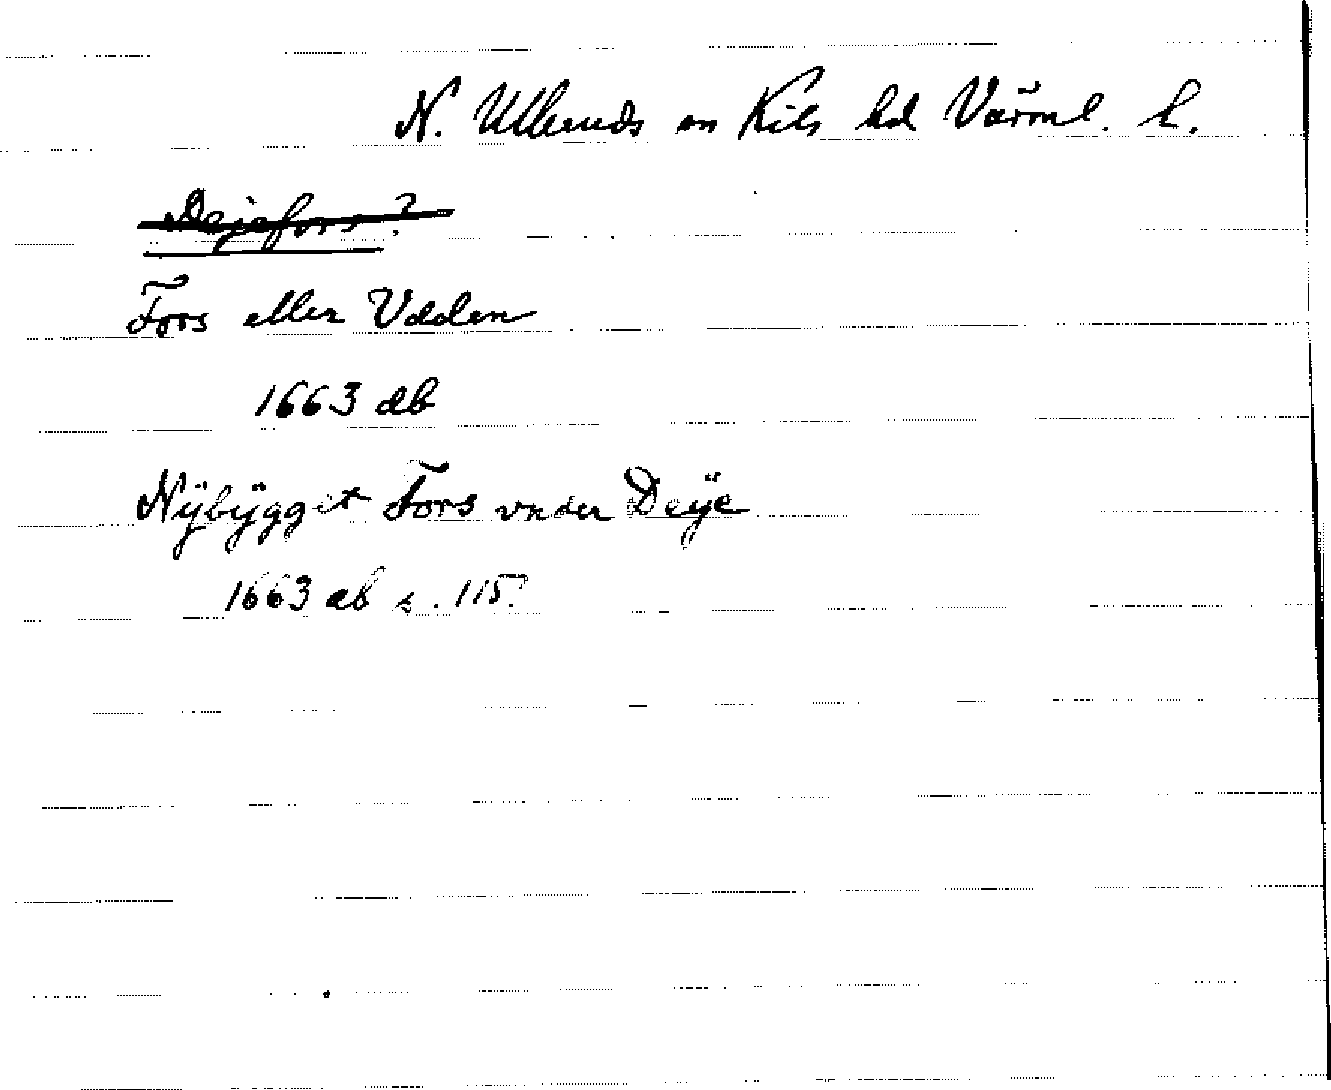 N. Ulleruds sn Kils hd Värml. l.
Dejefors?
Fors eller Vdden
1663 db
Nÿbÿgget Fors vnder Deÿe
1663 db s. 115.